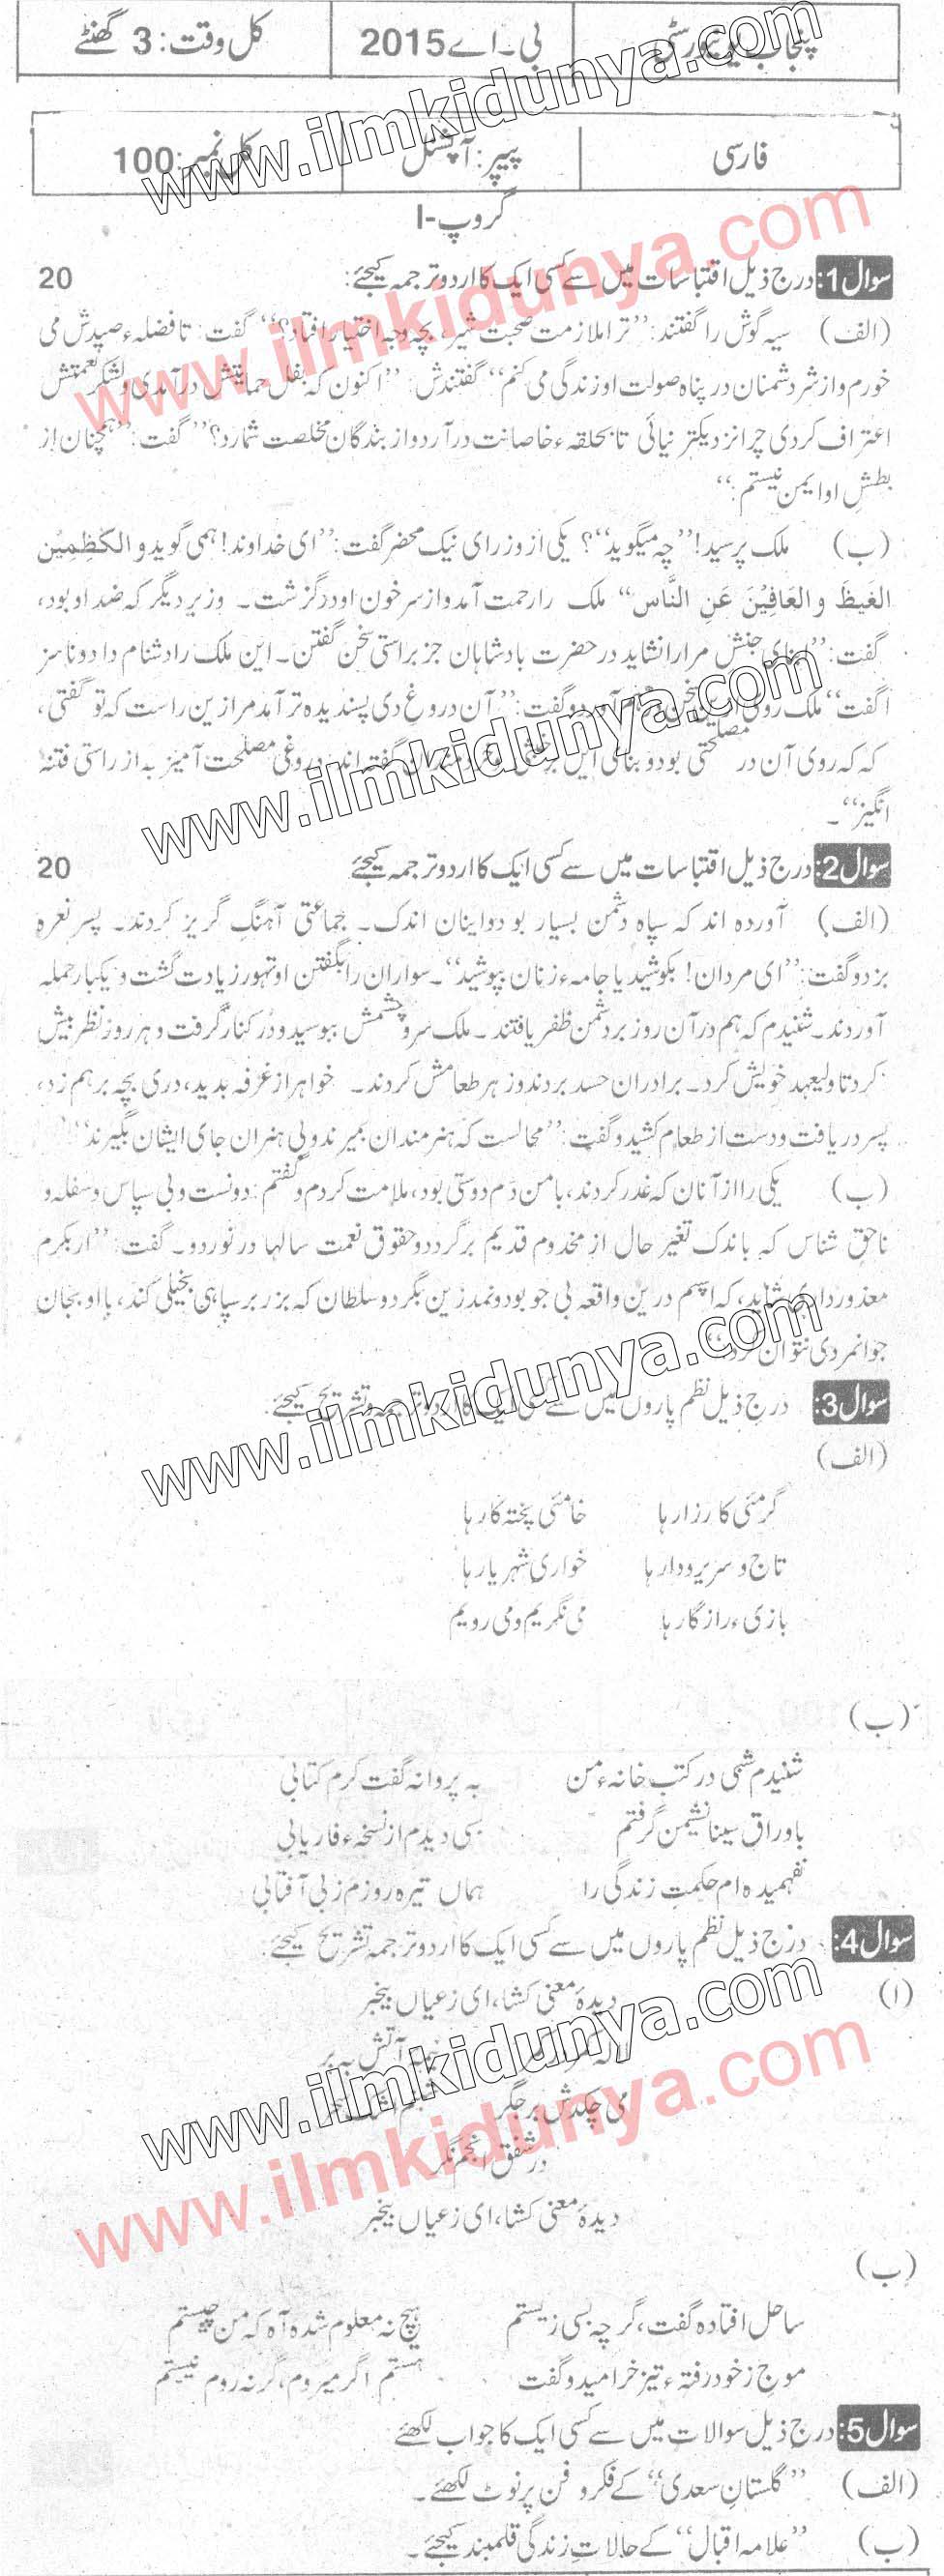 پنجاب یونیورسٹی بی۔اے 2015 کل وقت: 3 گھنٹے
فارسی پیپر: آپشنل کل نمبر: 100
گروپ-I
سوال 1: درج ذیل اقتباسات میں سے کسی ایک کا اردو ترجمہ کیجئے: 20
(الف) سیہ گوش را گفتند: ”ترا ملازمت صحبت شیر، بچہ وجہ اختیار افتاد؟“ گفت: تا فضلہء صیدش می
خورم و از شر دشمنان در پناہ صولت او زندگی می کنم“ گفتندش: ”اکنون کہ بفل حمایتش در آمدی و لشکر نعمتش
اعتراف کردی چرا نزدیکتر نیائی تا بحلقہء خاصانت در آرد و از بندگان مخلصت شمارد؟“ گفت: ”ہمچنان از
بطش او ایمن نیستم:“
(ب) ملک پرسید! ”چہ میگوید“؟ یکی از وزرای نیک محضر گفت: ”ای خداوند! ہمی گوید و الکٰظِمِیْن
الغَیظَ و العَافِیْنَ عَنِ النَّاس“ ملک را رحمت آمد و از سر خون او درگزشت۔ وزیر دیگر کہ ضد او بود،
گفت: ”ابنای جنش مرا را نشاید در حضرت بادشاہان جز براستی سخن گفتن۔ این ملک را دشنام دا دو ناسز
اگفت“ ملک روی ازین سخن درہم آورد و گفت: ”آن دروغ دی پسندیدہ تر آمد مرا زین راست کہ تو گفتی،
کہ کہ روی آن در مصلحتی بود و بنای این بر خبثی و خردمندان گفتہ اند: دروغی مصلحت آمیز بہ از راستی فتنہ
انگیز“۔
سوال 2: درج ذیل اقتباسات میں سے کسی ایک کا اردو ترجمہ کیجئے 20
(الف) آوردہ اند کہ سپاہ دشمن بسیار بود و اینان اندک۔ جماعتی آہنگ گریز کردند۔ پسر نعرہ
بزد و گفت: ”ای مردان! بکوشید یا جامہء زنان بپوشید“۔ سواران را بگفتن او تہور زیادت گشت و یکبار حملہ
آوردند۔ شنیدم کہ ہم در آن روز بر دشمن ظفر یافتند۔ ملک سر و چشمش ببوسید و در کنار گرفت و ہر روز نظر بیش
کرد تا ولیعہد خویش کرد۔ برادران حسد بردند و زہر طعامش کردند۔ خواہر از غرفہ بدید، دری بچہ برہم زد،
پسر دریافت و دست از طعام کشید و گفت: ”محالست کہ ہنرمندان بمیرند و بی ہنران جای ایشان بگیرند“
(ب) یکی را از آنان کہ غدر کردند، با من دم دوستی بود، ملامت کردم و گفتم: دونست و بی سپاس و سفلہ و
ناحق شناس کہ باندک تغیر حال از مخدوم قدیم برگردد و حقوق نعمت سالہا در نوردو۔ گفت: ”ار بکرم
معذور داری شاید، کہ اسپم درین واقعہ بی جو بود و نمد زین بگرد و سلطان کہ بزر بر سپاہی بخیلی کند، با او بجان
جوانمردی نتوان کرد“
سوال 3: درج ذیل نظم پاروں میں سے کسی ایک کا اردو ترجمہ و تشریح کیجئے:
(الف)
گرمئی کارزارہا خامئی پختہ کارہا
تاج و سریر و دارہا خواری شہریارہا
بازیء رازگارہا می نگریم و می رویم
(ب)
شنیدم شمی در کتب خانہء من بہ پروانہ گفت کرم کتابی
باوراق سینا نشیمن گرفتم بسی دیدم از نسخہء فاریابی
نفہمیدہ ام حکمت زندگی را ہماں تیرہ روزم ز بی آفتابی
سوال 4: درج ذیل نظم پاروں میں سے کسی ایک کا اردو ترجمہ تشریح کیجئے:
(ا) دیدۂ معنی کشا، ای زعیاں بیخبر
آتش بہ بر
می چکدش بر جگر
در شفق انجم نگر
دیدۂ معنی کشا، ای زعیاں بیخبر
(ب)
ساحل افتادہ گفت، گرچہ بسی زیستم ہیچ نہ معلوم شدہ آہ کہ من چیستم
موج ز خود رفتہء تیز خرامید و گفت ہستم اگر میروم، گر نہ روم نیستم
سوال 5: درج ذیل سوالات میں سے کسی ایک کا جواب لکھئے
(الف) ”گلستانِ سعدی“ کے فکر و فن پر نوٹ لکھئے۔
(ب) ”علامہ اقبال“ کے حالاتِ زندگی قلمبند کیجئے۔
www.ilmkidunya.com
www.ilmkidunya.com
www.ilmkidunya.com
www.ilmkidunya.com
www.ilmkidunya.com
www.ilmkidunya.com